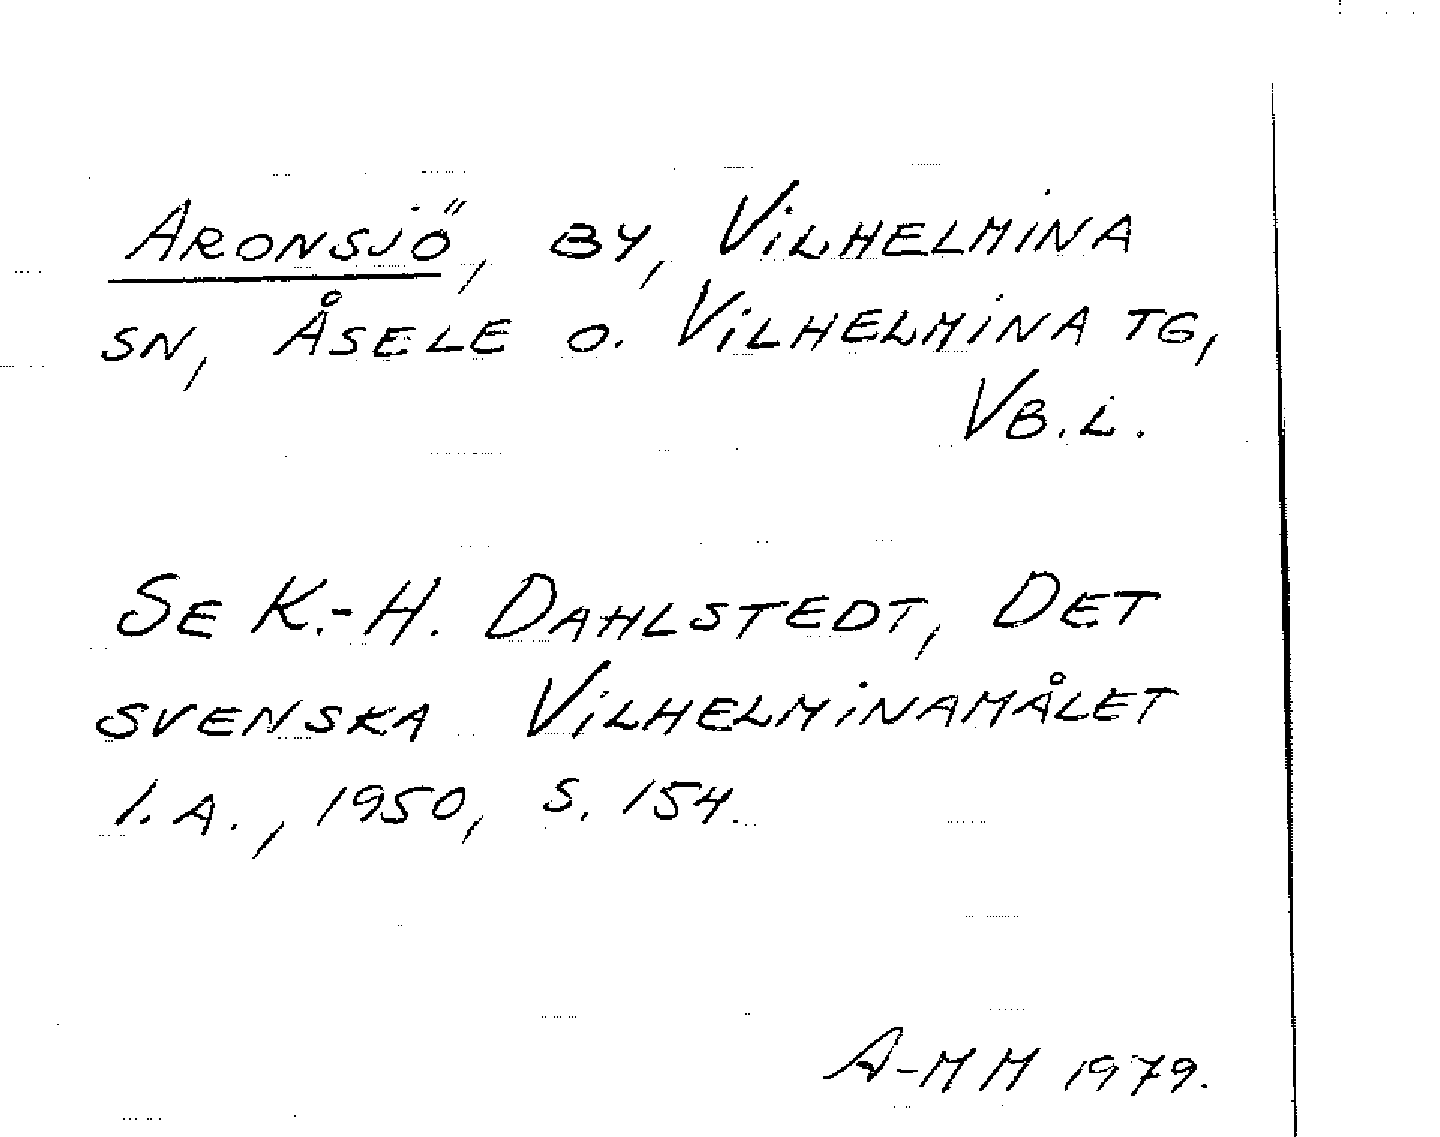 ARONSJÖ, BY, VILHELMINA
SN, ÅSELE O. VILHELMINA TG,
VB.L.
SE K.-H. DAHLSTEDT, DET
SVENSKA VILHELMINAMÅLET
1.A., 1950, S. 154.
A-MM 1979.